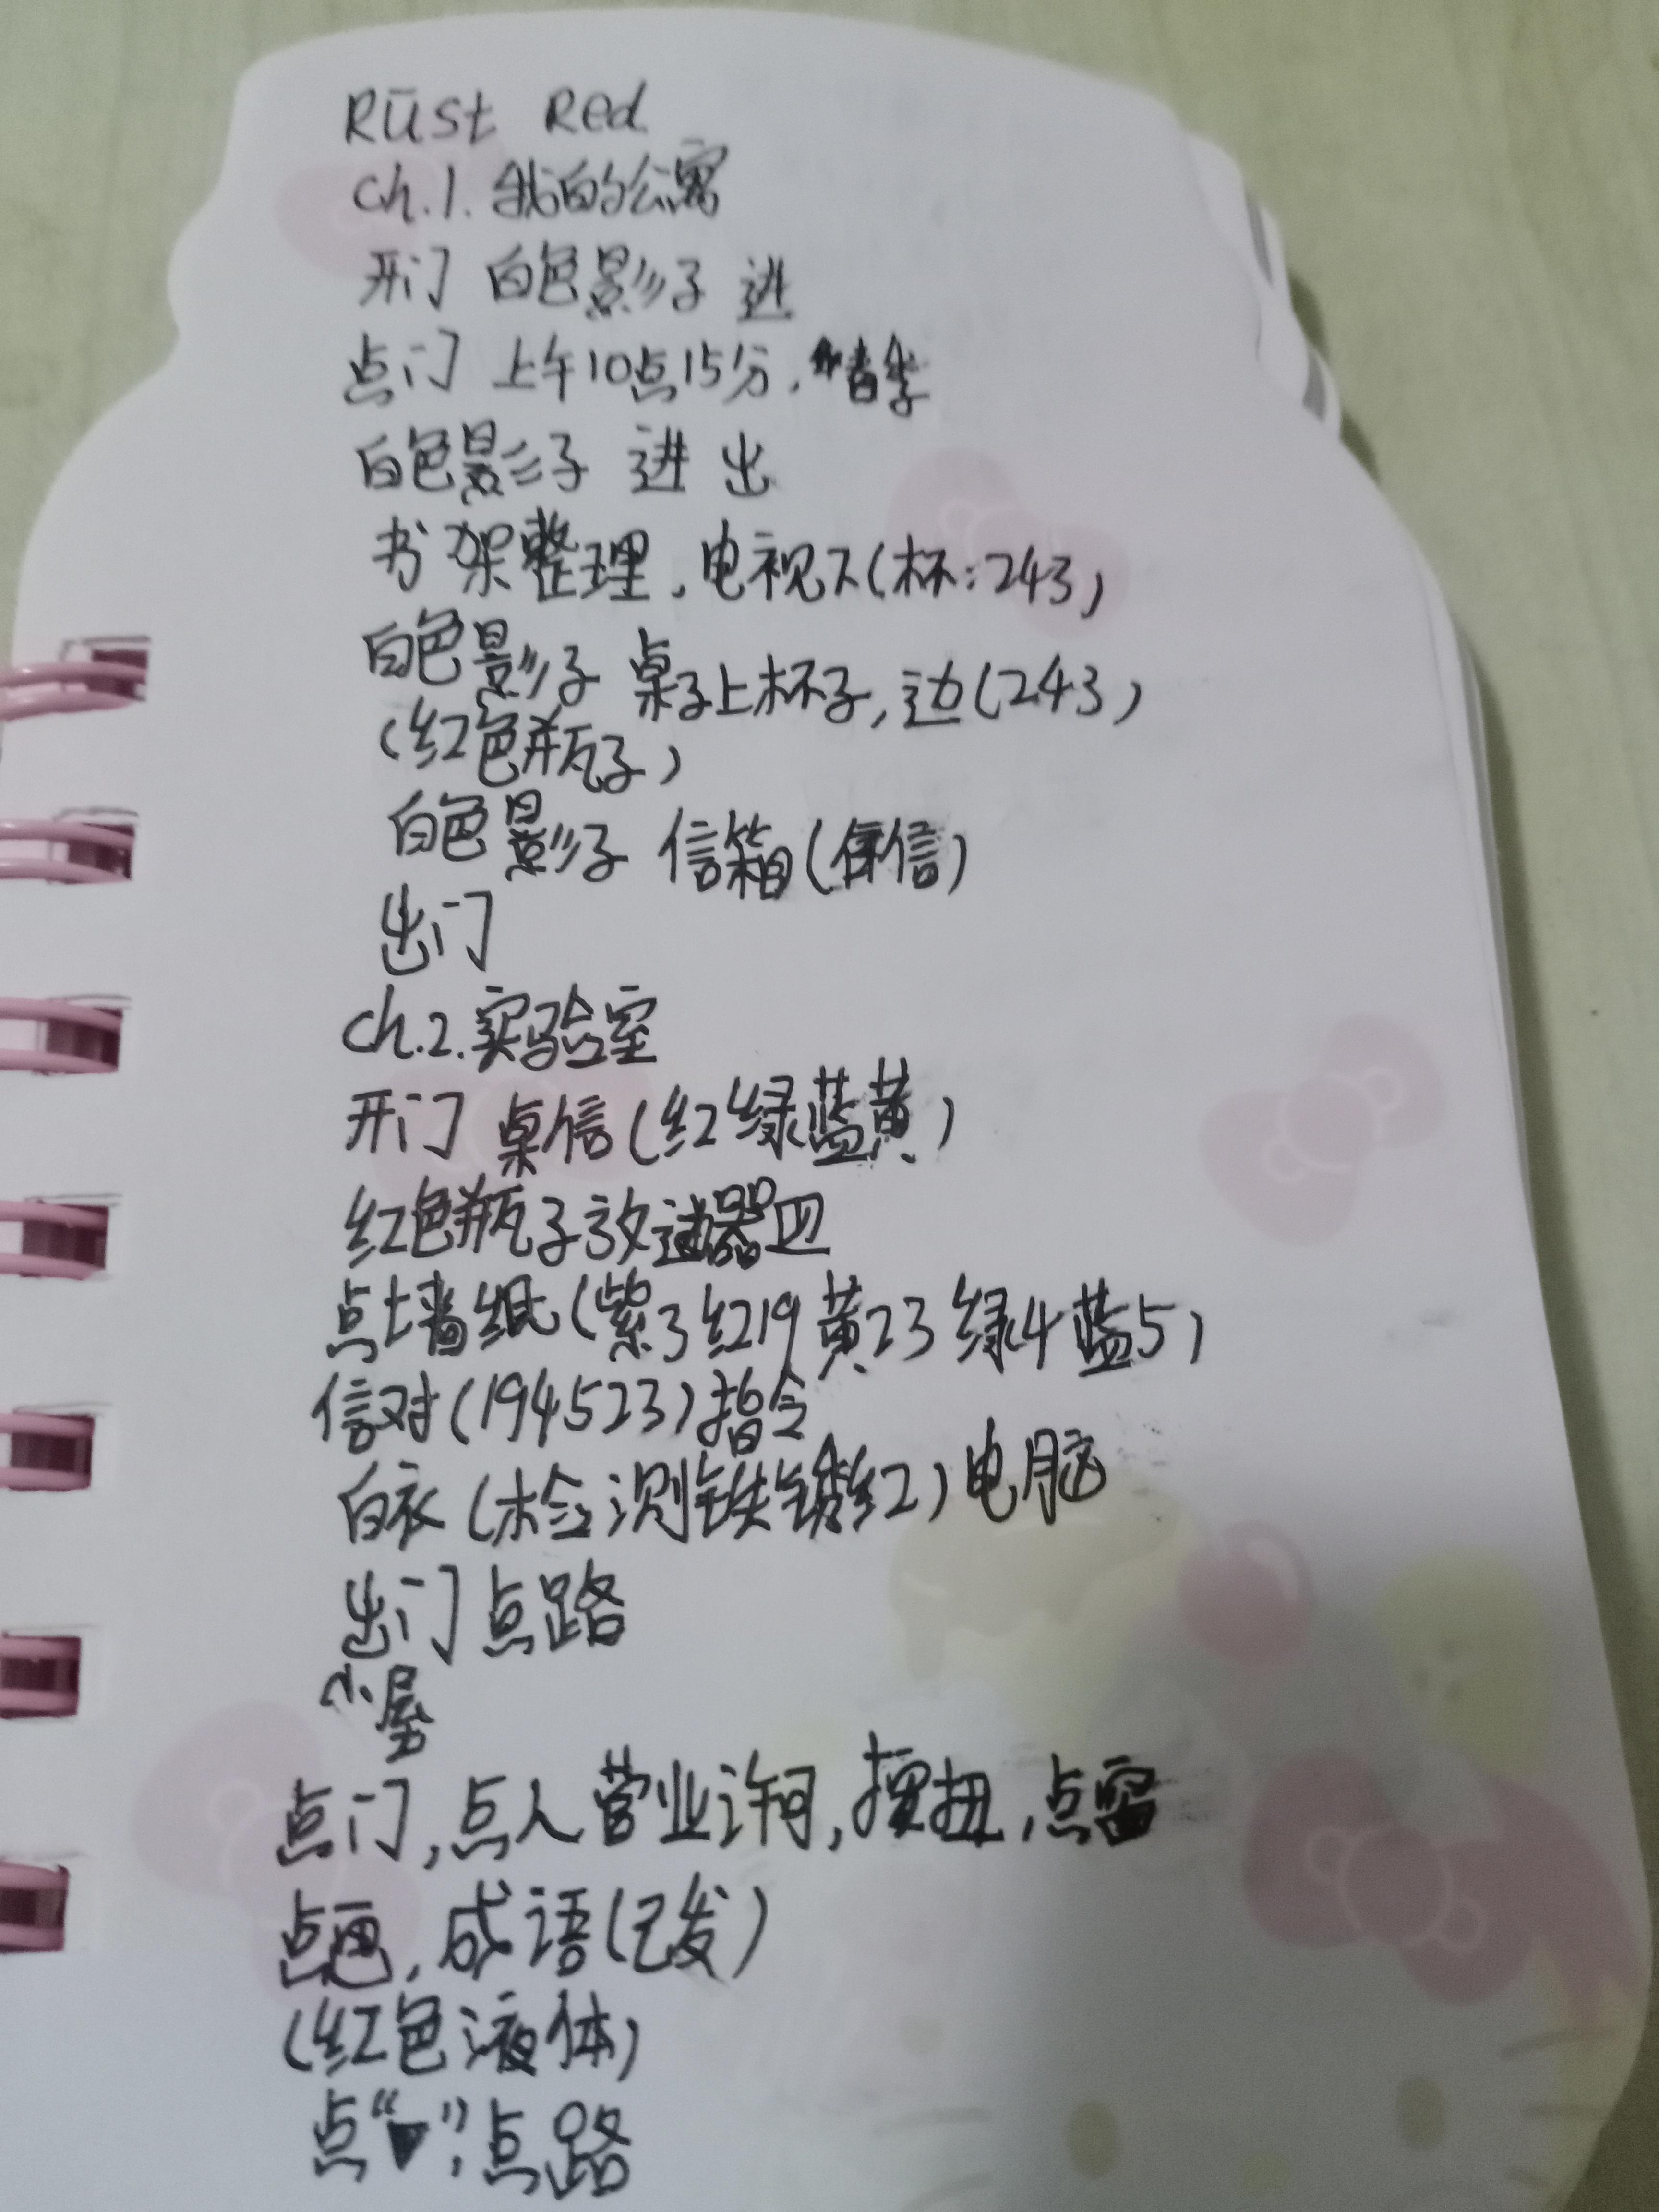 Rūst Red
ch.1.我的公寓
开门 白色影子 进
点门 上午10点15分,
白色影子 进 出
书架整理,电视下(杯:243)
白色影子 桌子上杯子,边(243)
(红色瓶子)
白色影子 信箱(信)
出门
ch.2.实验室
开门 桌信(红绿蓝黄)
红色瓶子放进器皿
点墙纸(紫3红19黄23绿4蓝5)
信对(194523)指令
白衣(检测铁锈红)电脑
出门 点路
小屋
点门,点人营业许可,摆扭,点窗
点画,成语(已发)
(红色液体)
点“▼”,点路